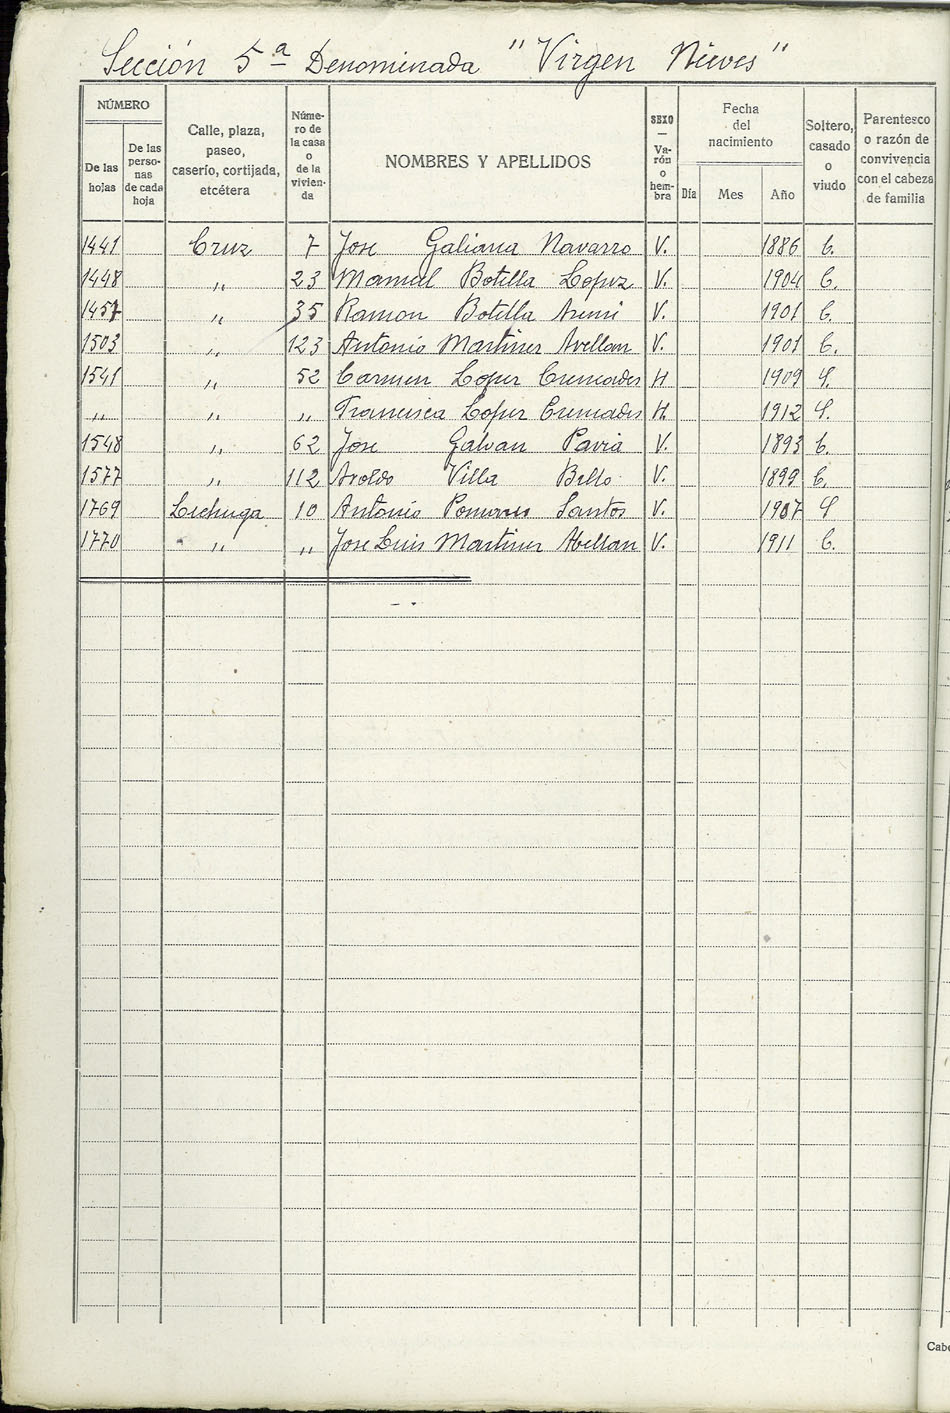 Sección 5ª Denominada "Virgen Nieves"
NÚMERO
De las hojas
De las perso-nas de cada hoja
Calle, plaza, paseo, caserío, cortijada, etcétera
Núme-ro de la casa o de la vivien-da
NOMBRES Y APELLIDOS
SEXO — Va-rón o hem-bra
Fecha del nacimiento
Día Mes Año
Soltero, casado o viudo
Parentesco o razón de convivencia con el cabeza de familia
1441 Cruz 7 Jose Galiana Navarro V. 1886 C.
1448 " 23 Manuel Botella Lopez V. 1904 C.
1457 " 35 Ramon Botella V. 1901 C.
1503 " 123 Antonio Martinez Avellan V. 1901 C.
1541 " 52 Carmen Lopez Cremades H 1909 S.
" " " Francisca Lopez Cremades H. 1912 S.
1548 " 62 Jose Galvan Pavia V. 1893 C.
1577 " 112 Aroldo Villa Bello V. 1899 C.
1769 Lechuga 10 Antonio Pomares Santos V. 1907 S
1770 " " Jose Luis Martinez Abellan V. 1911 C.
Cabe